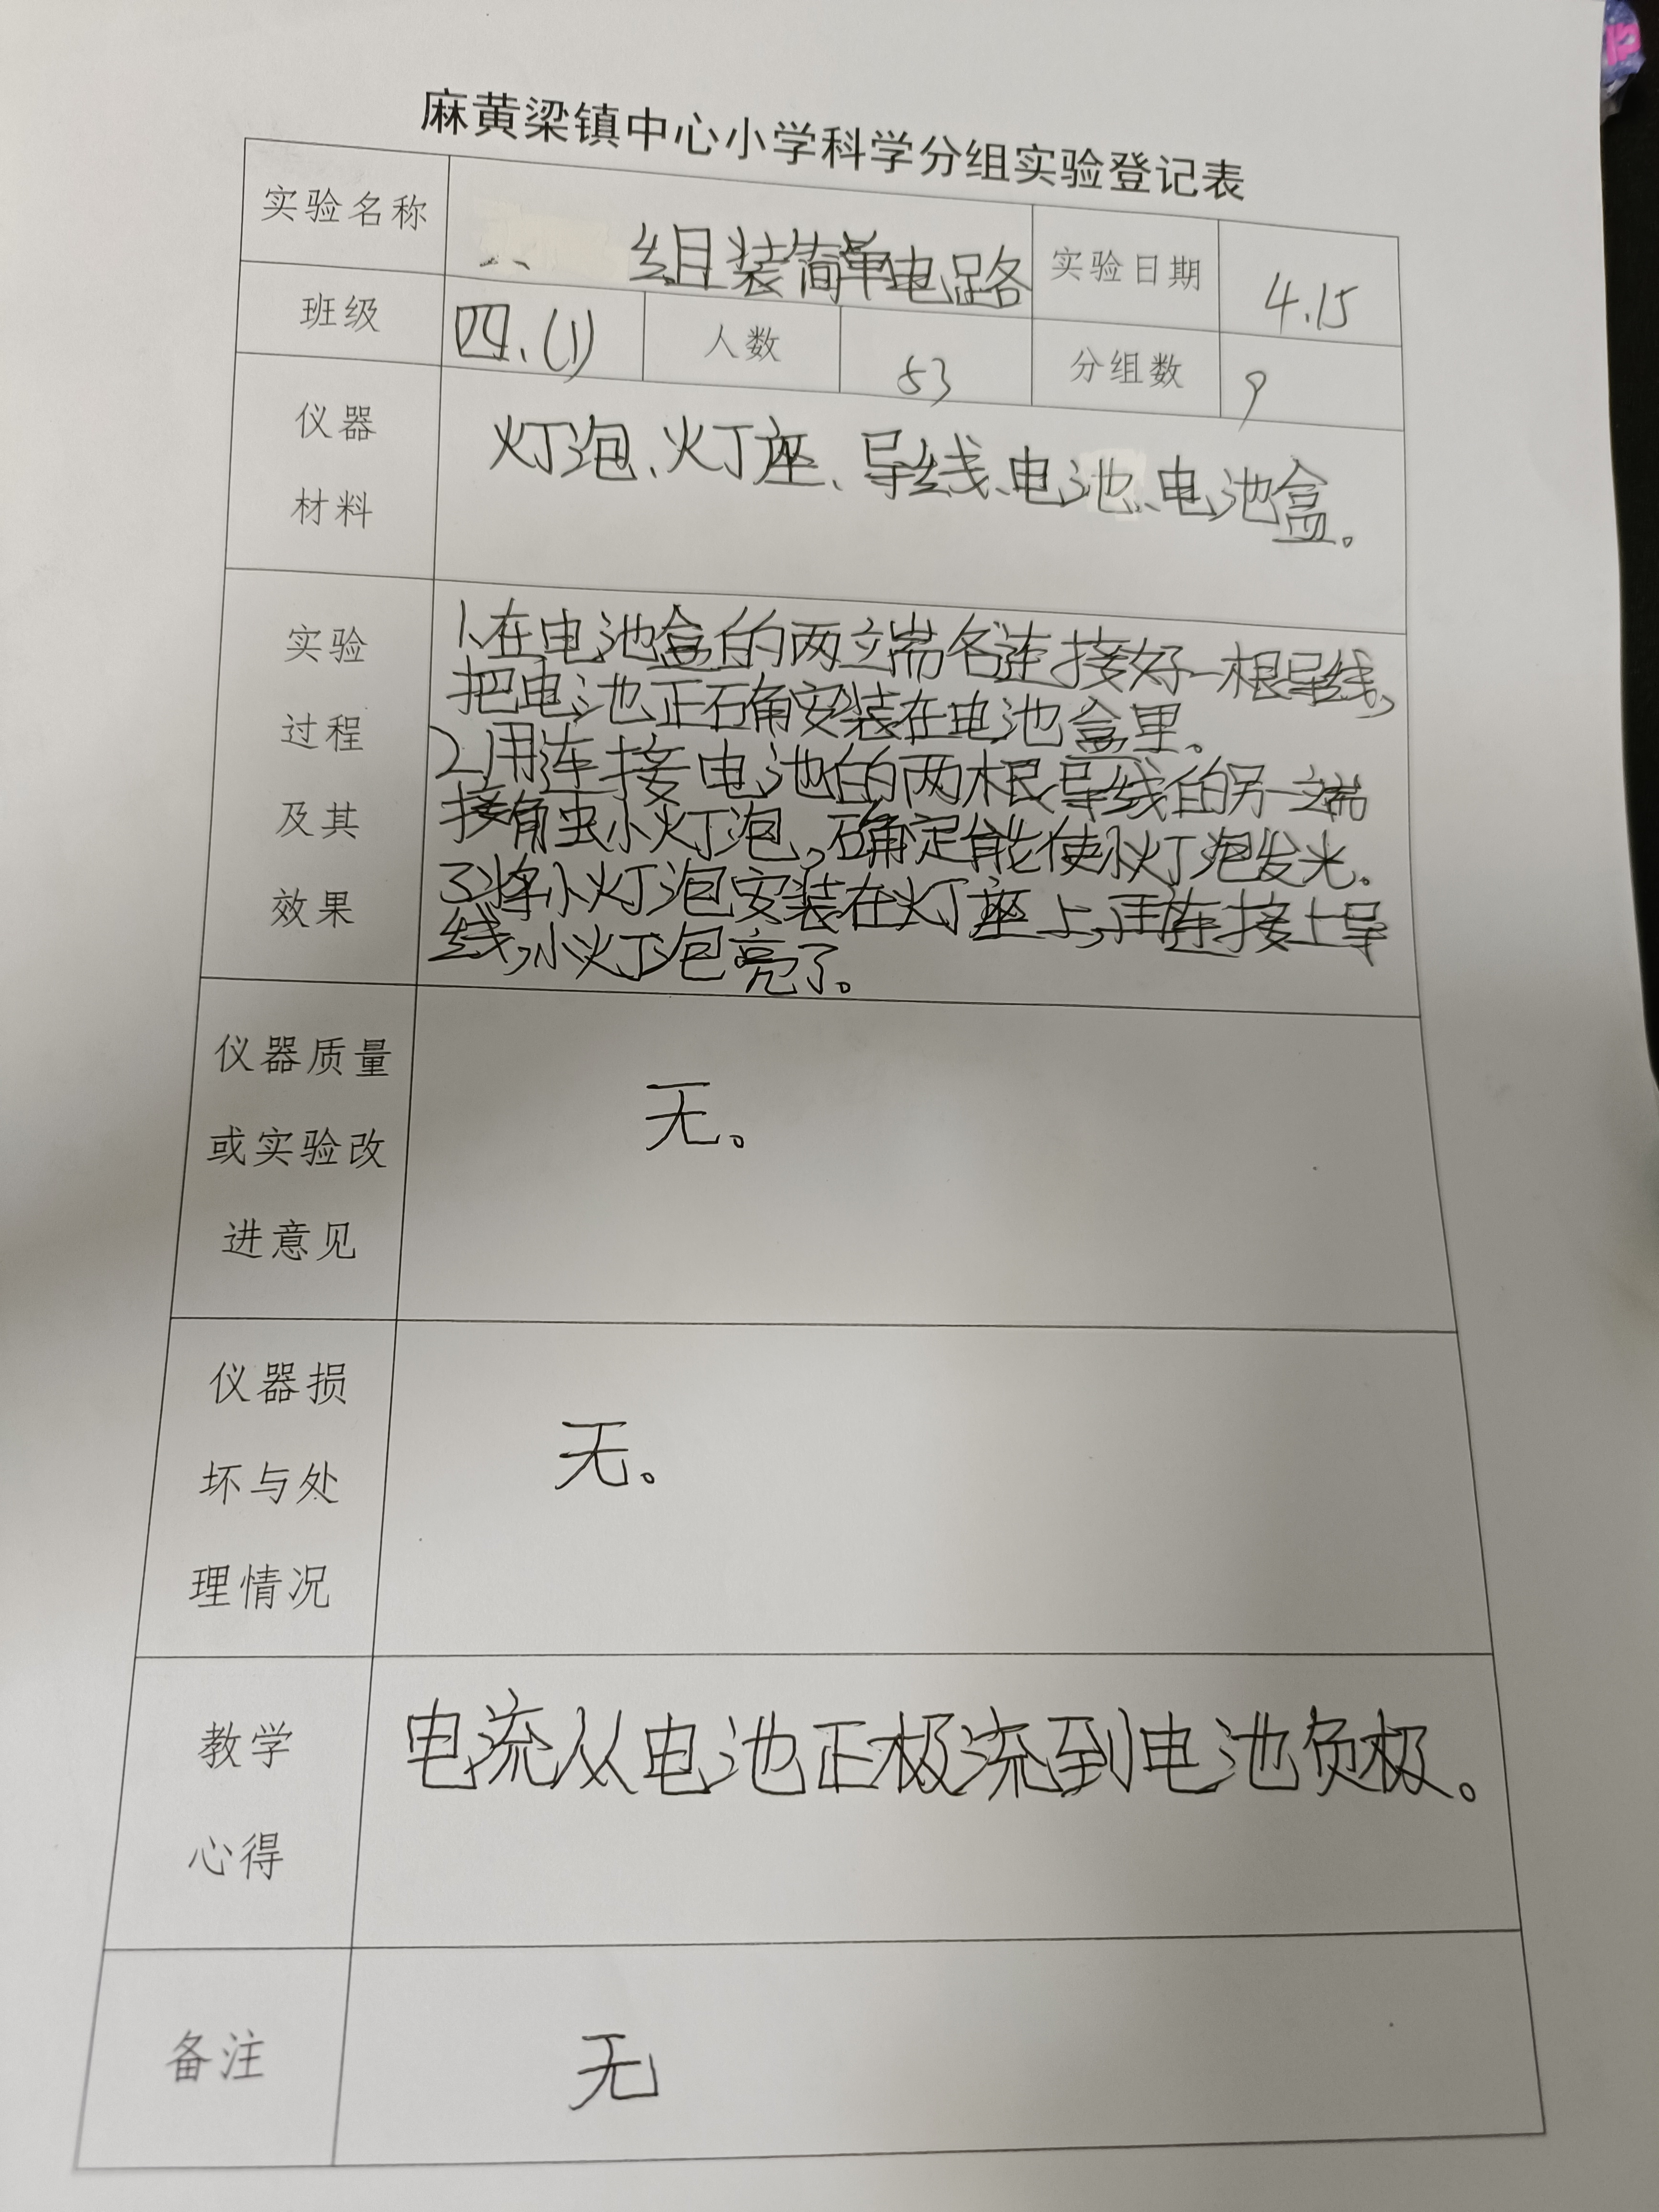 麻黄梁镇中心小学科学分组实验登记表
实验名称 组装简单电路 实验日期 4.15
班级 四.(1) 人数 53 分组数 9
仪器
材料
灯泡、灯座、导线、电池、电池盒。
实验
过程
及其
效果
1.在电池盒的两端各连接好一根导线,
把电池正确安装在电池盒里。
2.用连接电池的两根导线的另一端
接触小灯泡,确定能使小灯泡发光。
3.将小灯泡安装在灯座上,再连接上导
线,小灯泡亮了。
仪器质量
或实验改
进意见
无。
仪器损
坏与处
理情况
无。
教学
心得
电流从电池正极流到电池负极。
备注 无